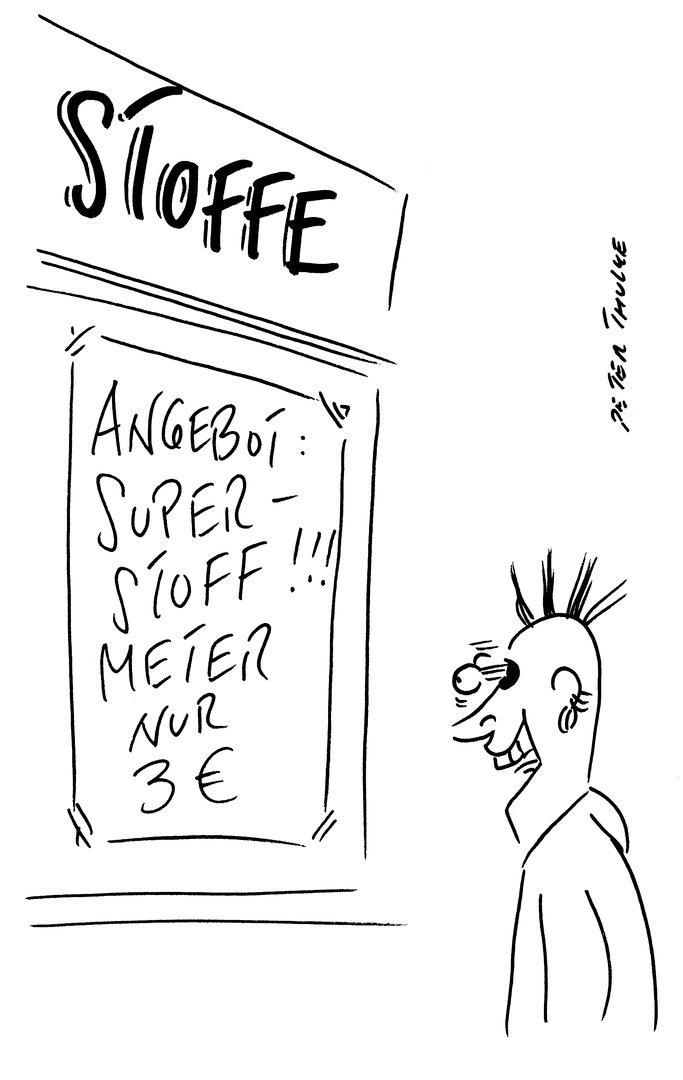 STOFFE
ANGEBOT:
SUPER-
STOFF!!!
METER
NUR
3 €
PETER THULKE